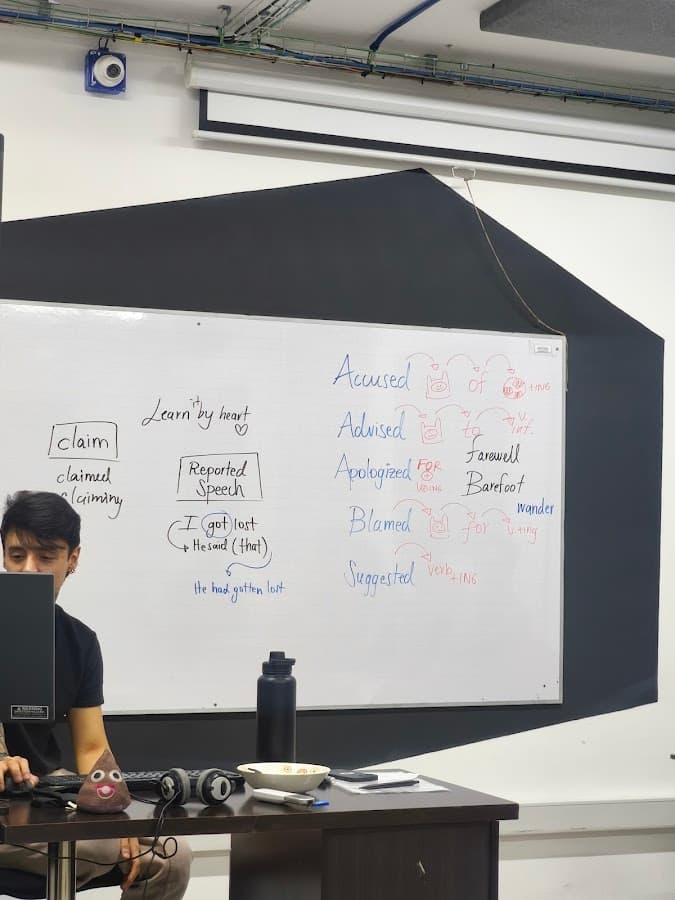 Learn it by heart
claim
claimed
claiming
Reported
Speech
I got lost
He said (that)
He had gotten lost
Accused of +ING
Advised to v. inf.
Apologized FOR + VOING
Farewell
Barefoot
wander
Blamed for v.+ing
Suggested verb +ING
WARNING